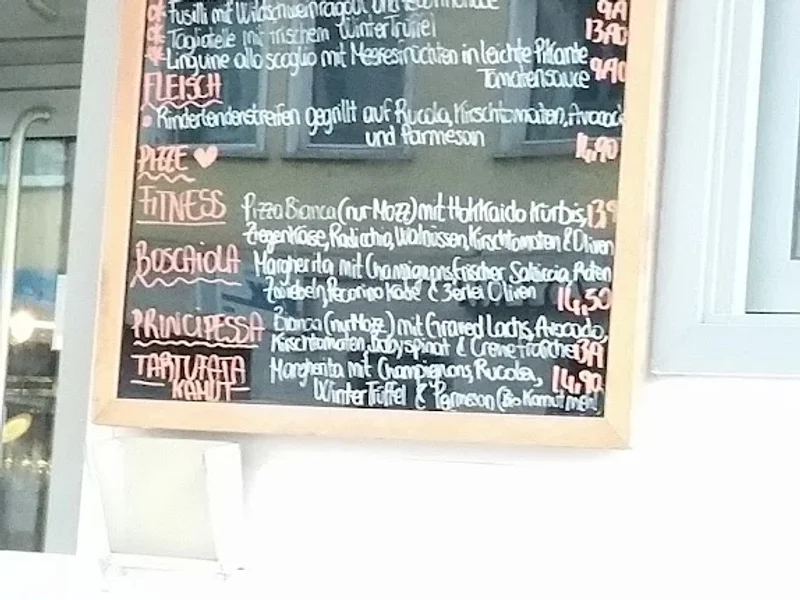 Fusilli mit Wildschweinragout und
Tagliatelle mit frischem WinterTrüffel 13,90
Linguine allo scoglio mit Meeresfrüchten in leichte Pikante
Tomatensauce 9,90
FLEISCH
Rinderlendenstreifen gegrillt auf Rucola, Kirschtomaten, Avocado
und Parmesan
PIZZE
FITNESS Pizza Bianca (nur Mozz) mit Hokkaido Kürbis,
Ziegenkäse, Radicchio, Walnüssen, Kirschtomaten & Oliven
BOSCAIOLA Margherita mit Champignons, frischer Salsiccia, Roten
Zwiebeln, Pecorino Käse & 3erlei Oliven 14,50
PRINCIPESSA Bianca (nur Mozz) mit Graved Lachs, Avocado,
Kirschtomaten, Babyspinat & Creme Fraiche
TARTUFATA Margherita mit Champignons, Rucola, 14,90
KAMUT WinterTrüffel & Parmesan (Bio Kamutmehl)